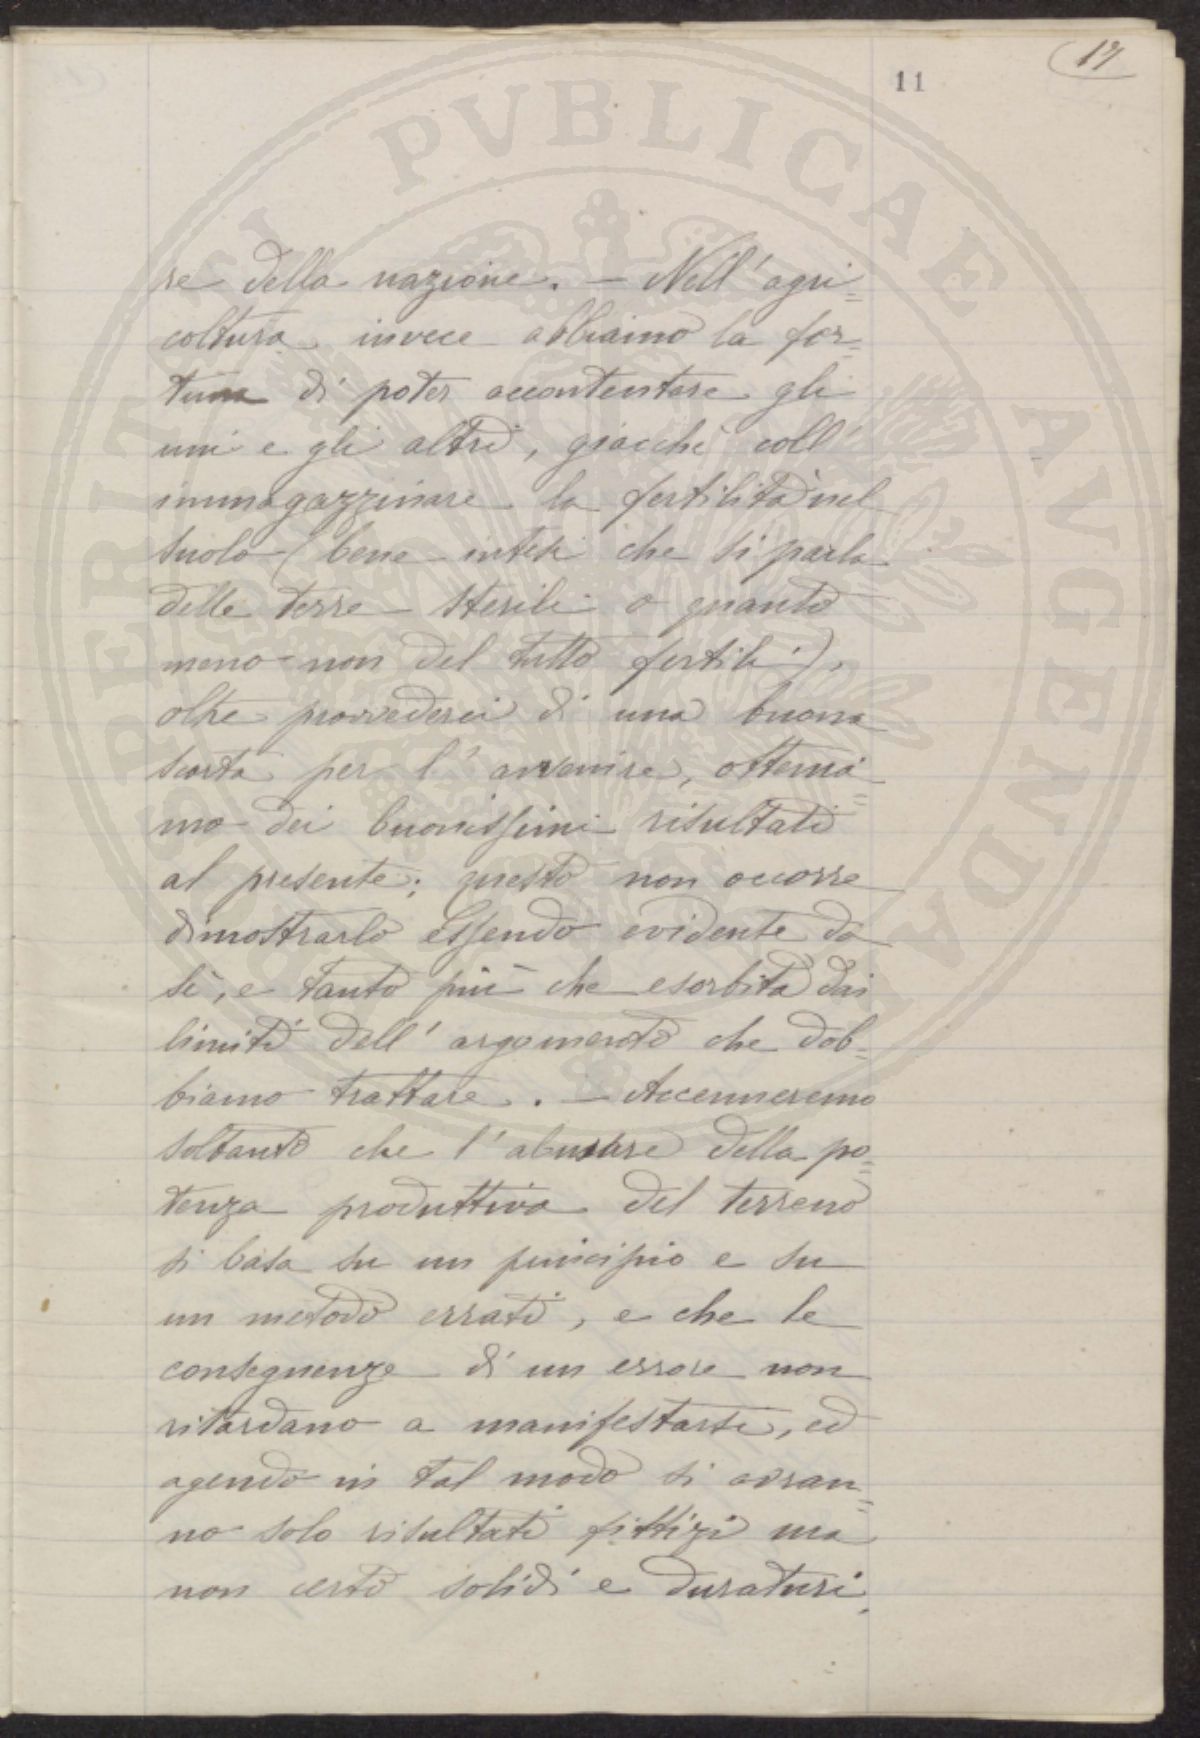 17
11
PUBLICAE
PROSPERITATI
AVGENDAE
re della nazione. — Nell'agri=
coltura invece abbiamo la for=
tuna di poter accontentare gli
uni e gli altri, giacchè coll'
immagazzinare la fertilità nel
suolo (bene intesi che si parla
delle terre sterili o quanto
meno non del tutto fertili),
oltre provvederci di una buona
scorta per l'avvenire, ottenia=
mo dei buonissimi risultati
al presente; questo non occorre
dimostrarlo essendo evidente da
sè, e tanto più che esorbita dai
limiti dell'argomento che dob=
biamo trattare. — Accenneremo
soltanto che l'abusare della po=
tenza produttiva del terreno
si basa su un principio e su
un metodo errati, e che le
conseguenze di un errore non
ritardano a manifestarsi, ed
agendo in tal modo si avran=
no solo risultati fittizi ma
non certo solidi e duraturi.